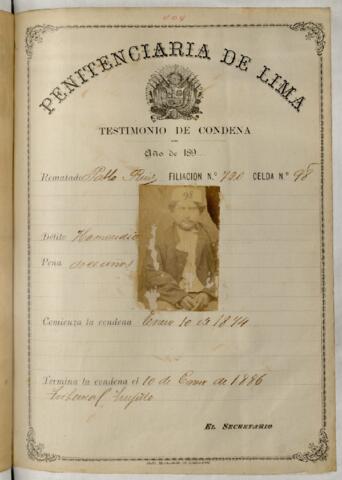 PENITENCIARIA DE LIMA
TESTIMONIO DE CONDENA
Año de 189
Rematado Pablo Ruiz FILIACION N.º 720 CELDA N.º 98
98
Delito Homicidio
Pena doce años
Comienza la condena Enero 10 de 1874
Termina la condena el 10 de Enero de 1886
Tribunal Trujillo
EL SECRETARIO